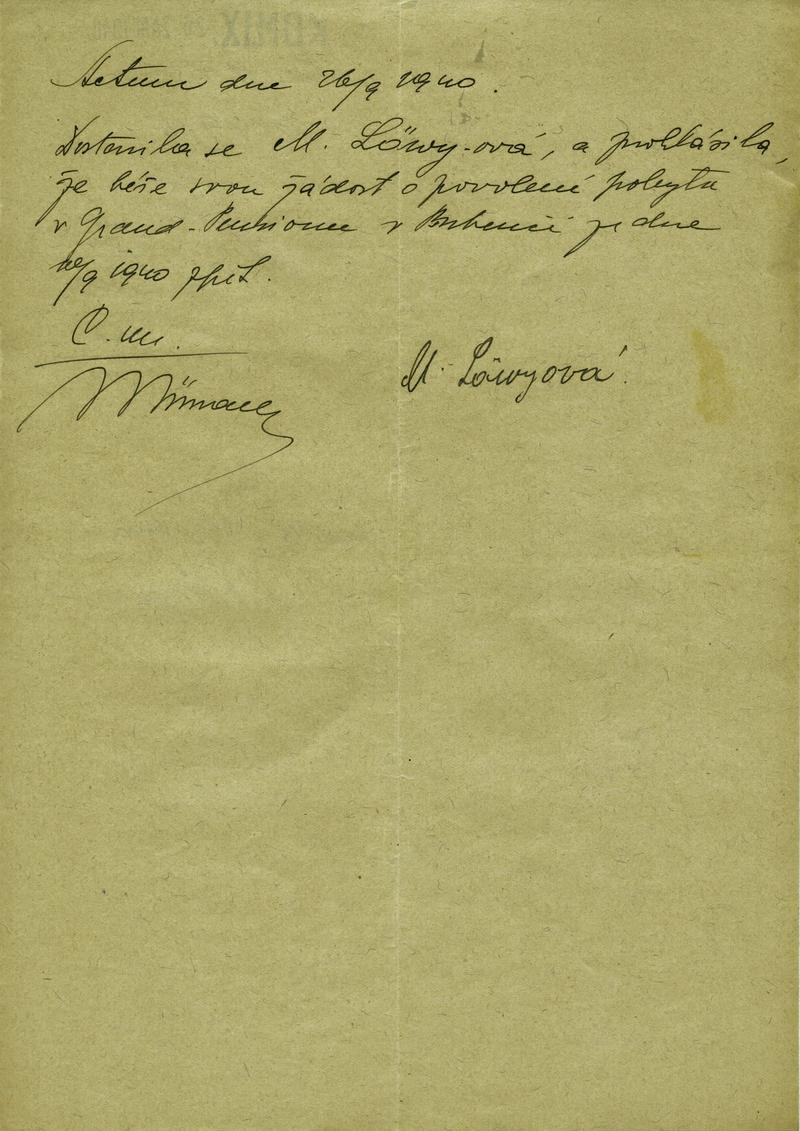 Actum dne 26/9 1940.
Dostavila se M. Löwy-ová, a prohlásila,
že béře svou žádost o povolení pobytu
v Grand-Pensionu v Bubenči ze dne
/9 1940 zpět.
Č. m.
M. Löwyová.